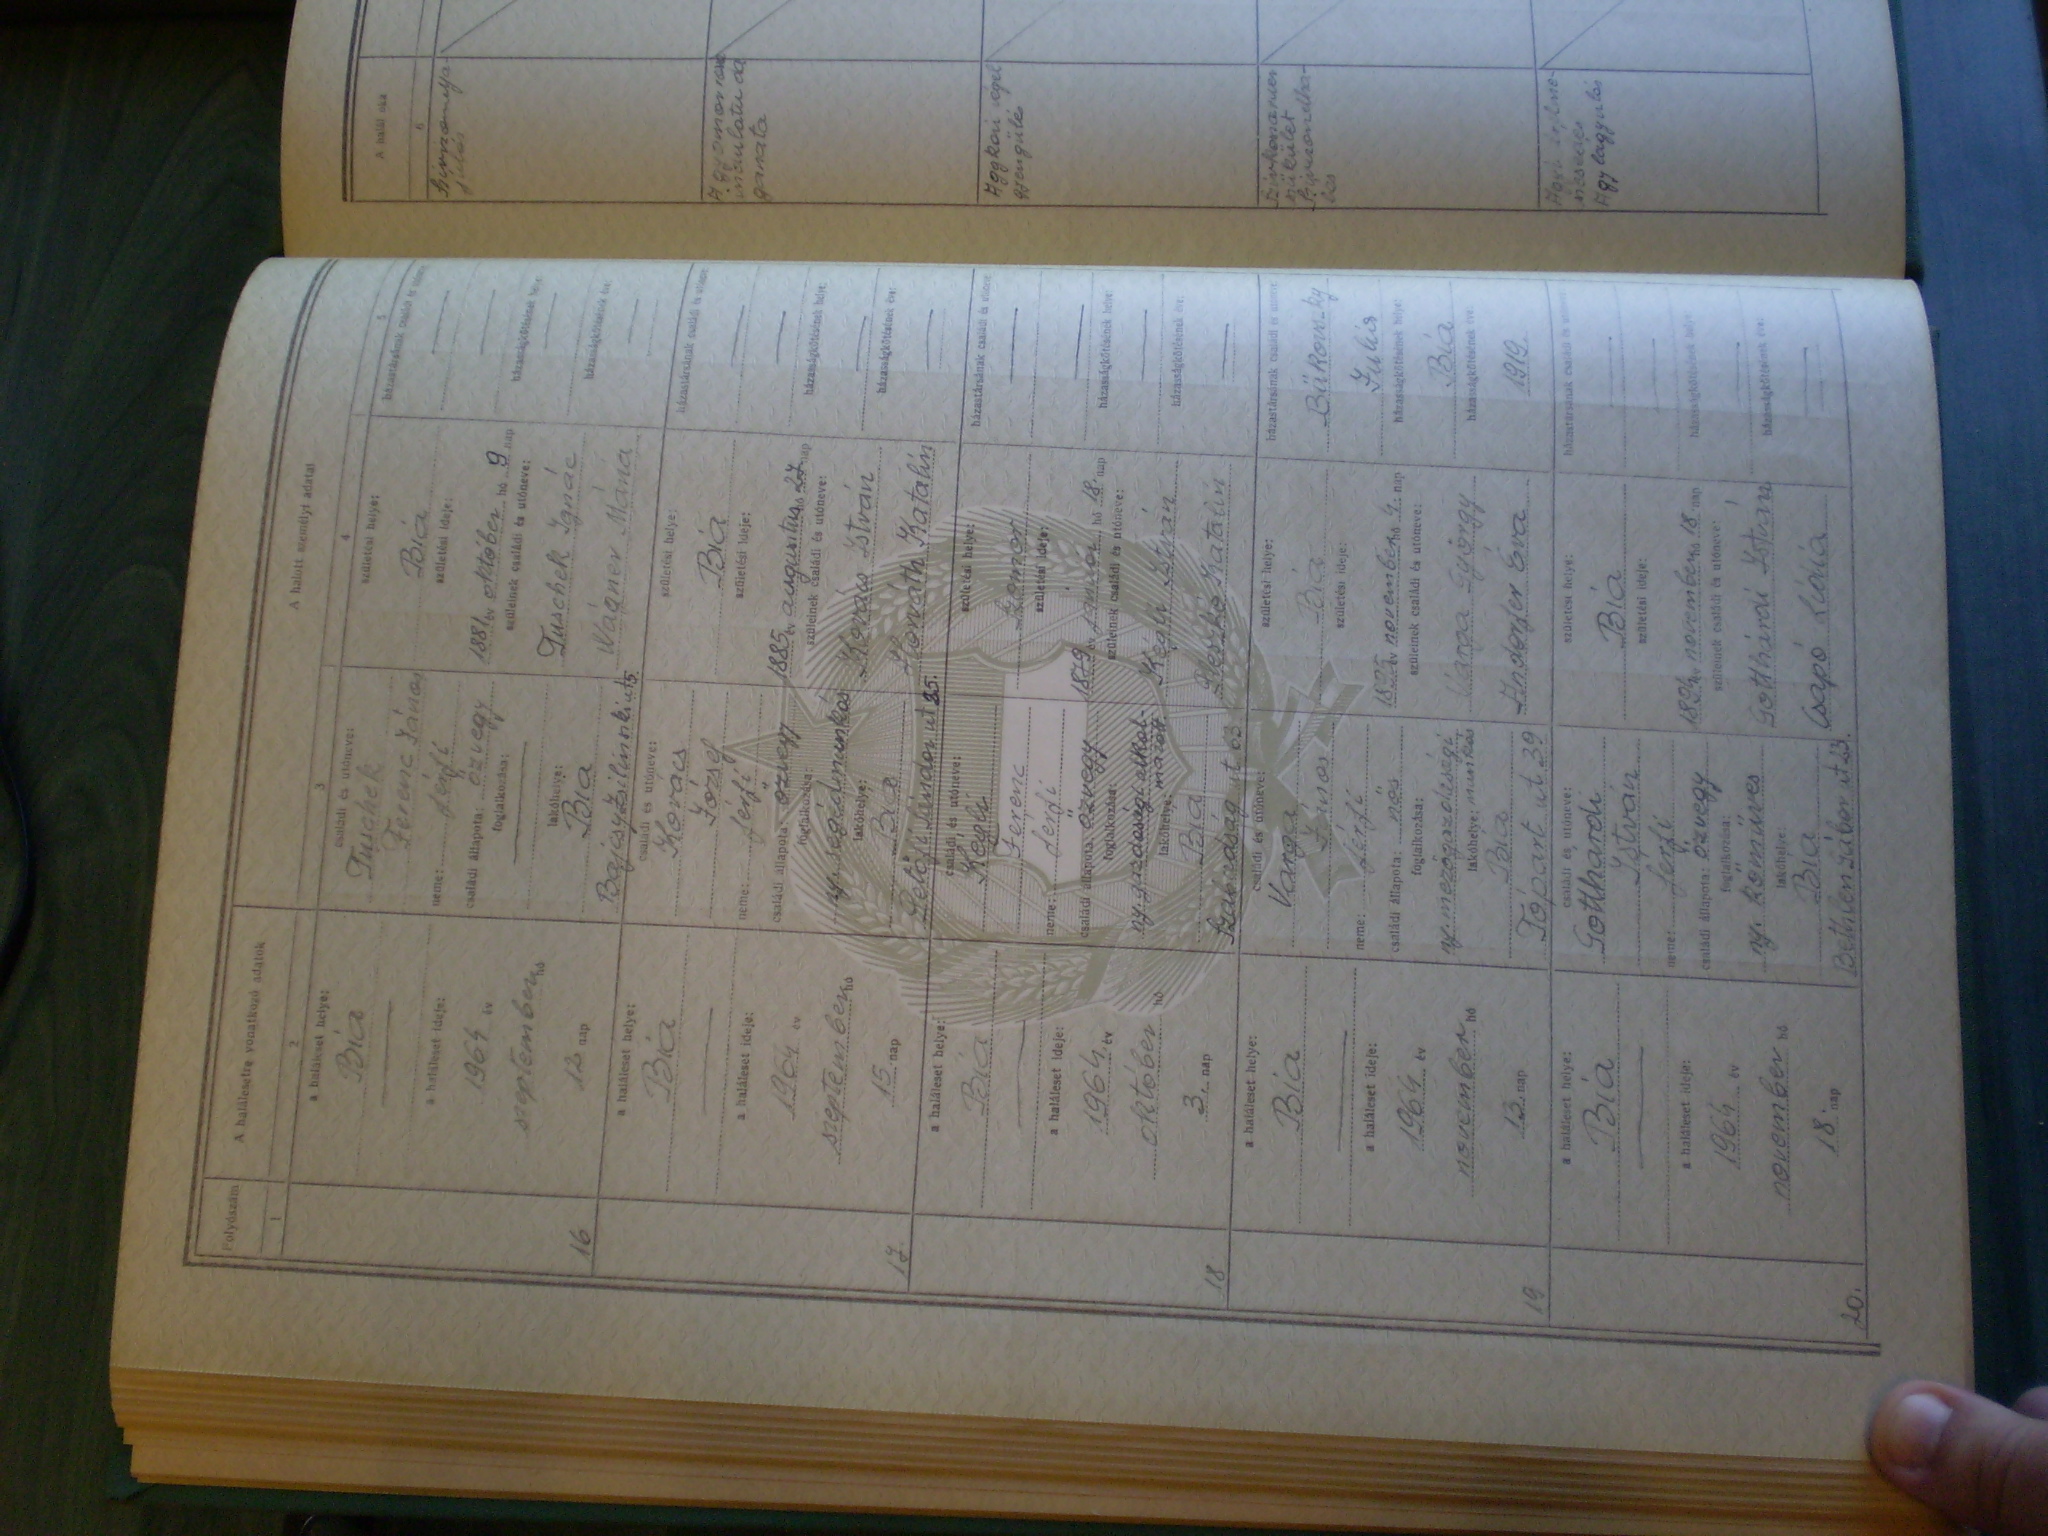 Folyószám
A halálesetre vonatkozó adatok
A halott személyi adatai
A halál oka
1
2
3
4
5
6
16
a haláleset helye:
Bia
a haláleset ideje:
1964 év
szeptember hó
12 nap
családi és utóneve:
Tuschek
Ferenc János
neme: férfi
családi állapota: özvegy
foglalkozása:
lakóhelye:
Bia
Bajcsyzsilinszki út 5.
születési helye:
Bia
születési ideje:
1881 év október hó 9 nap
szüleinek családi és utóneve:
Tuschek Ignác
Wágner Mária
házastársának családi és utóneve:
házasságkötésének helye:
házasságkötésének éve:
17.
a haláleset helye:
Bia
a haláleset ideje:
1964 év
szeptember hó
15. nap
családi és utóneve:
Kovács
József
neme: férfi
családi állapota: özvegy
foglalkozása:
ny. segédmunkás
lakóhelye:
Bia
Petőfi Sándor út 25.
születési helye:
Bia
születési ideje:
1885 év augusztus hó 27 nap
szüleinek családi és utóneve:
Kovács István
Horváth Katalin
házastársának családi és utóneve:
házasságkötésének helye:
házasságkötésének éve:
Aggkori végel
gyengülés
18.
a haláleset helye:
Bia
a haláleset ideje:
1964 év
október hó
3. nap
családi és utóneve:
Kégli
Ferenc
neme: férfi
családi állapota: özvegy
foglalkozása:
ny. gazdasági alkal-
lakóhelye: mazott
Bia
Szabadság út 63
születési helye:
születési ideje:
1879 év január hó 18. nap
szüleinek családi és utóneve:
Kégli István
Peszko Katalin
házastársának családi és utóneve:
házasságkötésének helye:
házasságkötésének éve:
19
a haláleset helye:
Bia
a haláleset ideje:
1964 év
november hó
13. nap
családi és utóneve:
Varga
János
neme: férfi
családi állapota: nős
foglalkozása:
ny. mezőgazdasági
lakóhelye: munkás
Bia
Tópart út 39
születési helye:
Bia
születési ideje:
1895 év november hó 4. nap
szüleinek családi és utóneve:
Varga György
Andorfer Éva
házastársának családi és utóneve:
Julis
házasságkötésének helye:
Bia
házasságkötésének éve:
1919.
20.
a haláleset helye:
Bia
a haláleset ideje:
1964 év
november hó
18. nap
családi és utóneve:
Gotthárdi
István
neme: férfi
családi állapota: özvegy
foglalkozása:
ny. kőműves
lakóhelye:
Bia
Bethlen Gábor út 13.
születési helye:
Bia
születési ideje:
1894 év november hó 18 nap
szüleinek családi és utóneve:
Gotthárdi István
Csapó Lidia
házastársának családi és utóneve:
házasságkötésének helye:
házasságkötésének éve:
Agylágyulás